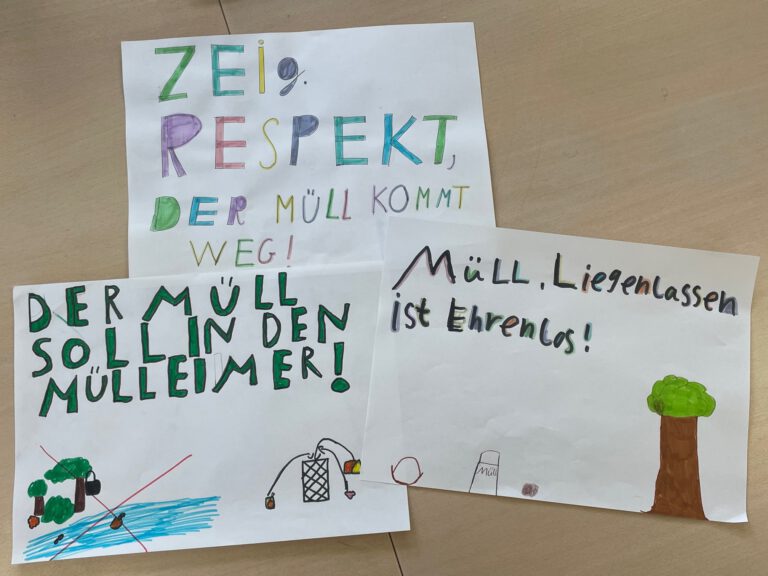 ZEig.
RESPEKT,
DER MÜLL KOMMT
WEG!
DER MÜLL
SOLL IN DEN
MÜLLEIMER!
MÜLL. Liegenlassen
ist Ehrenlos!
Müll